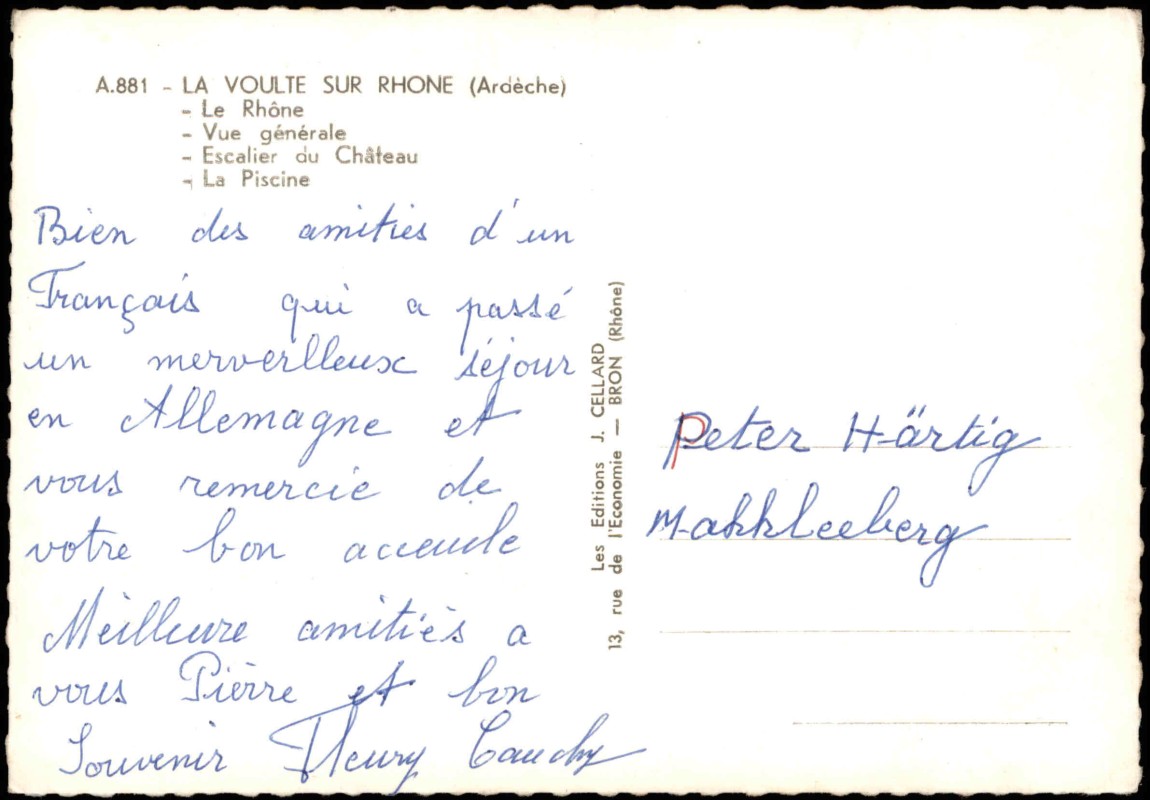 A.881 - LA VOULTE SUR RHONE (Ardèche)
- Le Rhône
- Vue générale
- Escalier du Château
- La Piscine
Bien des amitiés d'un
Français qui a passé
un merverlleux séjour
en Allemagne et
vous remercie de
votre bon accueile
Meilleure amitiés a
vous Pierre et bon
Souvenir Fleury Cauchy
Les Editions J. CELLARD
13, rue de l'Economie — BRON (Rhône)
Peter Härtig
Makkleeberg